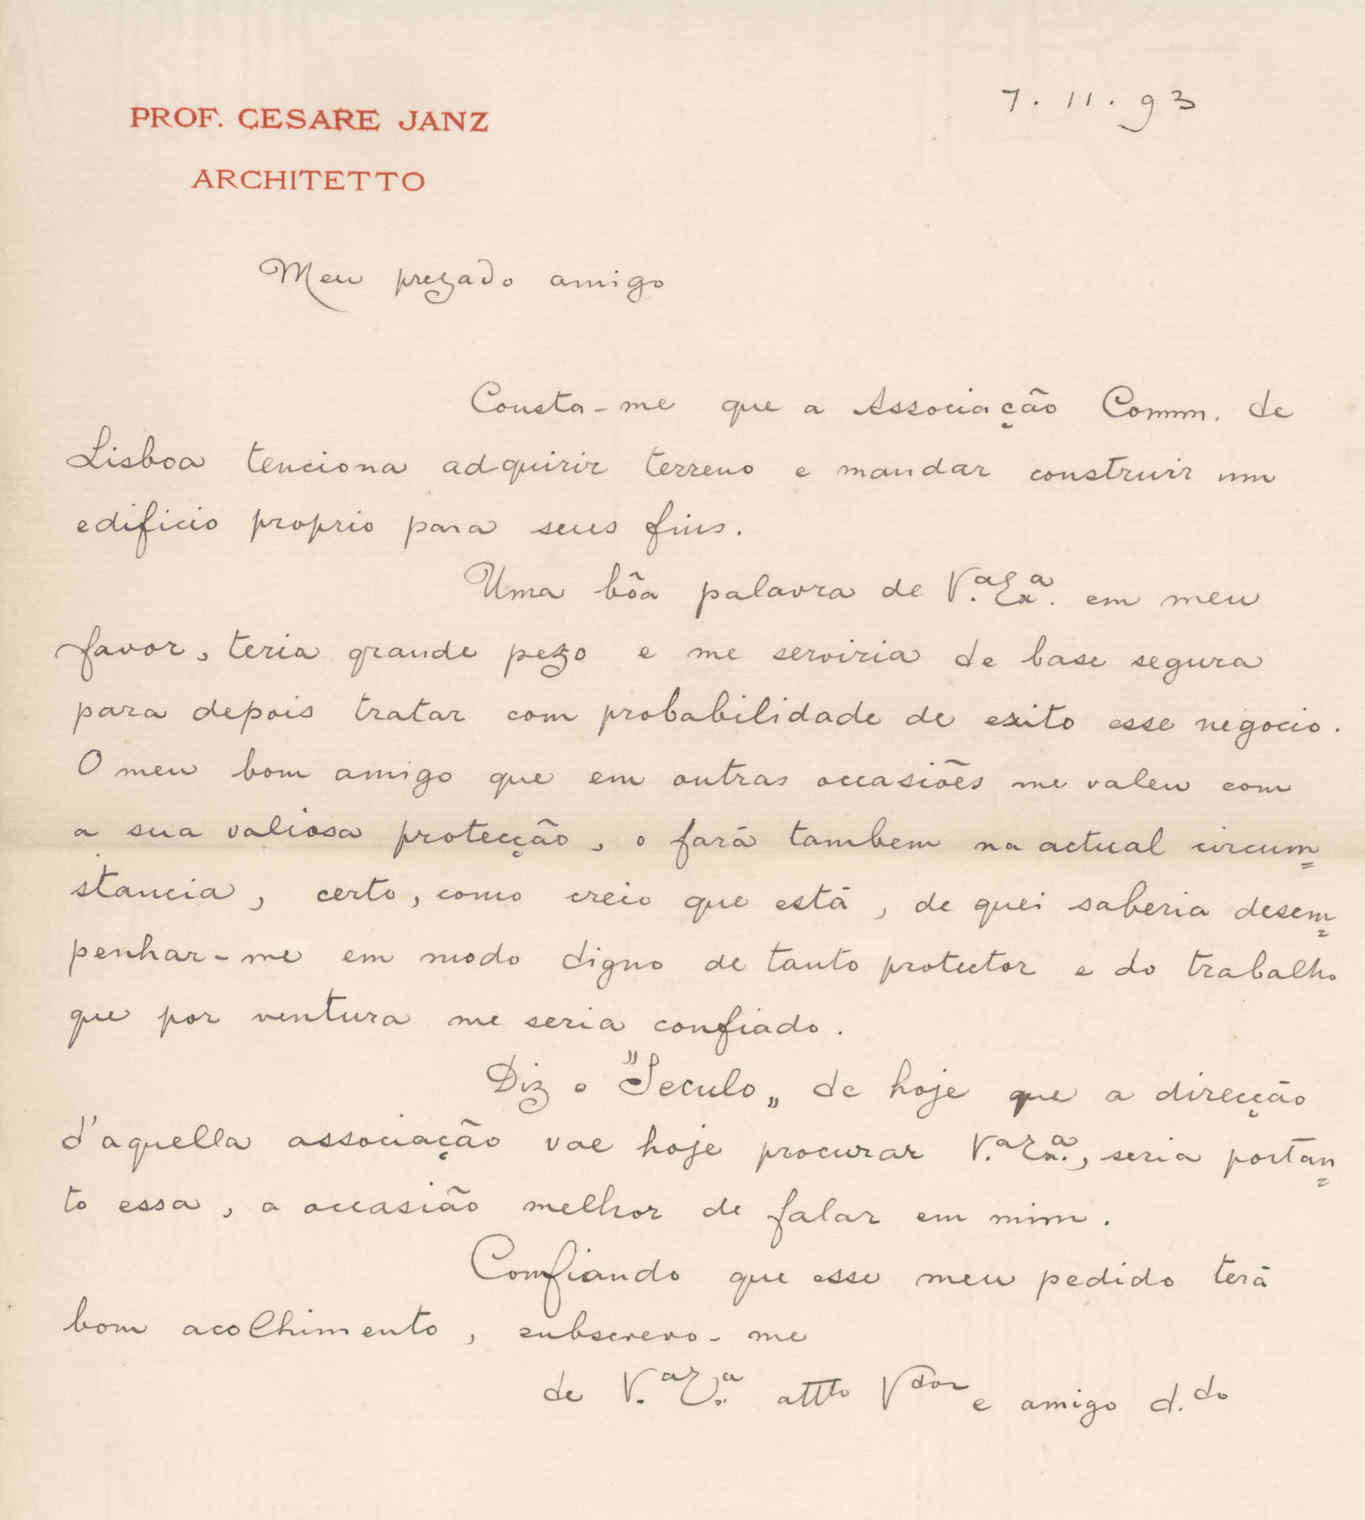 PROF. CESARE JANZ
ARCHITETTO
7. 11. 93
Meu prezado amigo
Consta-me que a Associação Comm. de
Lisboa tenciona adquirir terreno e mandar construir um
edificio proprio para seus fins.
Uma bôa palavra de V.ª Ex.ª em meu
favor, teria grande pezo e me serviria de base segura
para depois tratar com probabilidade de exito esse negocio.
O meu bom amigo que em outras occasiões me valeu com
a sua valiosa protecção, o fará tambem na actual circum=
stancia, certo, como creio que está, de quei saberia desem=
penhar-me em modo digno de tanto protector e do trabalho
que por ventura me seria confiado.
Diz o "Seculo„ de hoje que a direcção
d'aquella associação vae hoje procurar V.ª Ex.ª, seria portan=
to essa, a occasião melhor de falar em mim.
Comfiando que esse meu pedido terá
bom acolhimento, subscrevo-me
de V.ª E.ª attto Vdor e amigo d.do